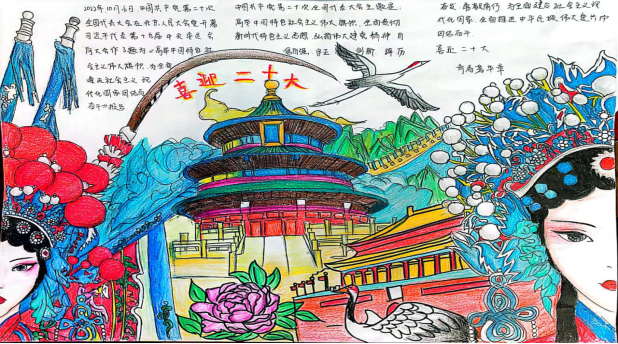 2022年10月16日,中国共产党第二十次
全国代表大会在北京人民大会堂开幕
习近平代表第十九届中央委员会
向大会作了题为《高举中国特色
社会主义伟大旗帜 为全面
建设社会主义现
代化国家而团结
奋斗》的报告
中国共产党第二十次全国代表大会主题是:
高举中国特色社会主义伟大旗帜,全面贯彻
新时代特色主义思想,弘扬伟大建党精神,自
信自强、守正创新 踔厉
奋发、勇毅前行 为全面建设社会主义现
代化国家、全面推进中华民族伟大复兴而
团结奋斗
喜迎二十大
喜迎二十大